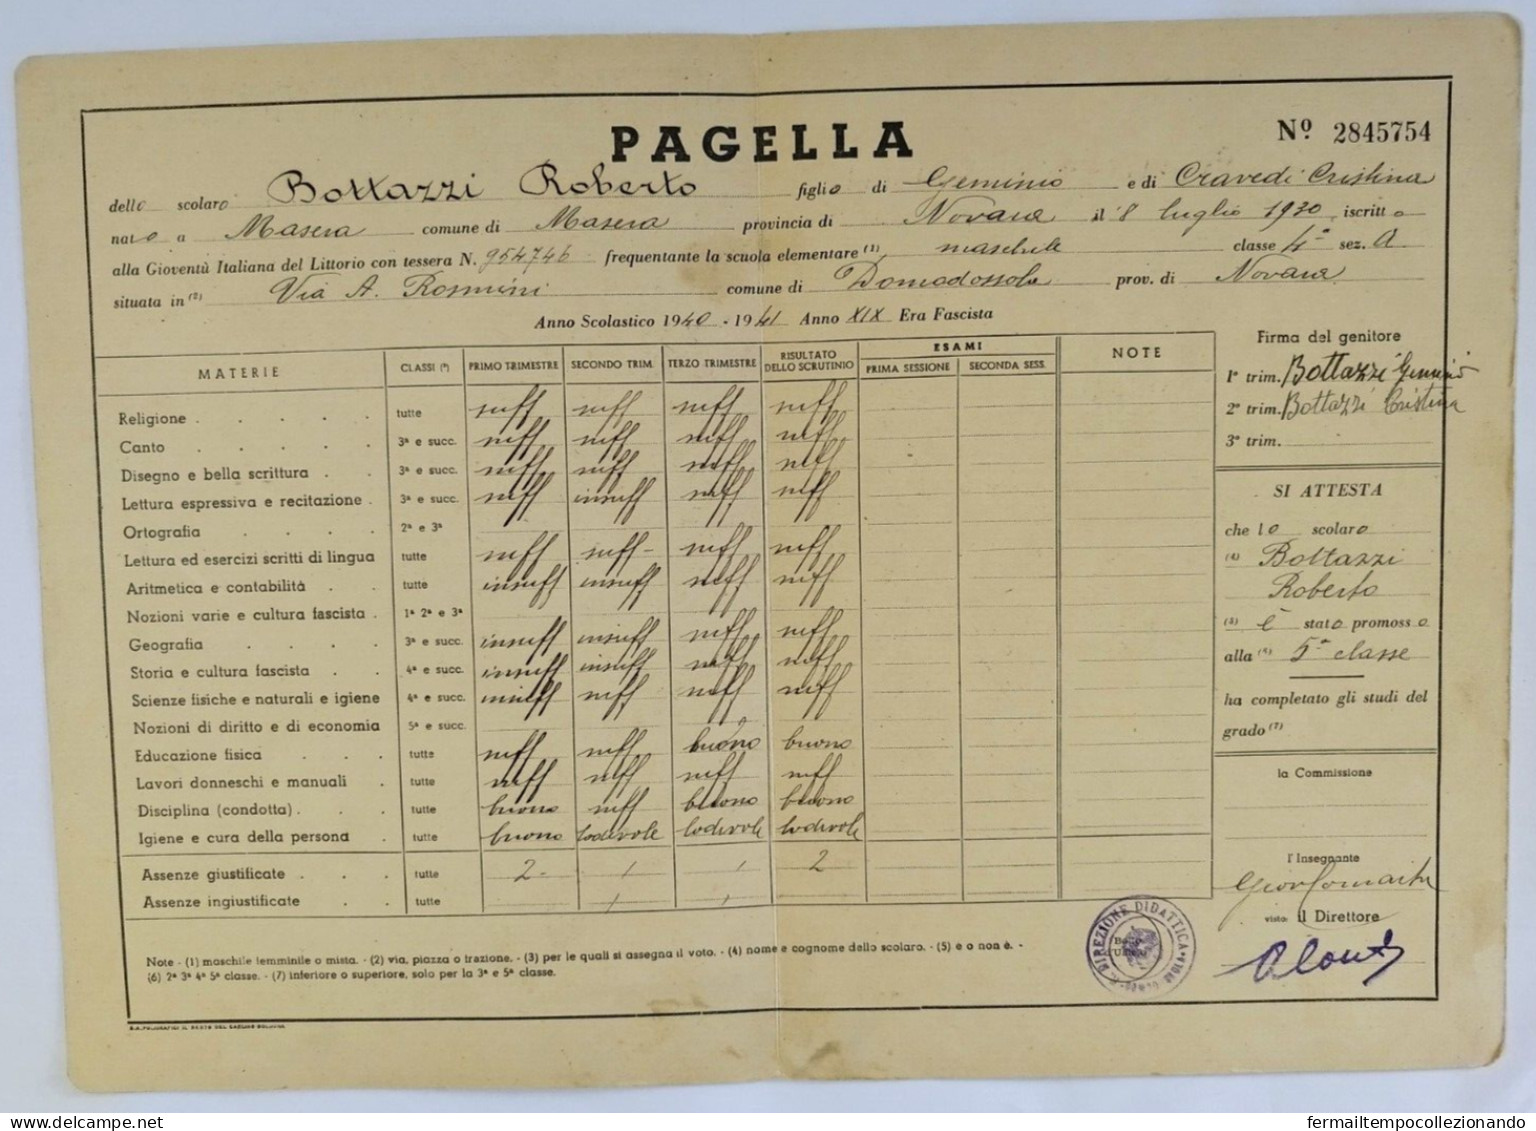 PAGELLA
Nº 2845754
dello scolaro Bottazzi Roberto figlio di Geminio e di Cravedi Cristina
nato a Masera comune di Masera provincia di Novara il 8 luglio 1930, iscritto
alla Gioventù Italiana del Littorio con tessera N. 954746 frequentante la scuola elementare (1) maschile classe 4ª sez. A
situata in (2) Via A. Rosmini comune di Domodossola prov. di Novara
Anno Scolastico 1940 - 1941 Anno XIX Era Fascista
MATERIE CLASSI (*) PRIMO TRIMESTRE SECONDO TRIM. TERZO TRIMESTRE RISULTATO DELLO SCRUTINIO ESAMI PRIMA SESSIONE SECONDA SESS. NOTE
Religione . . . . tutte suff suff suff suff
Canto . . . . . 3ª e succ. suff suff suff suff
Disegno e bella scrittura . . 3ª e succ. suff suff suff suff
Lettura espressiva e recitazione . 3ª e succ. suff insuff suff suff
Ortografia . . . . 2ª e 3ª
Lettura ed esercizi scritti di lingua tutte suff suff- suff suff
Aritmetica e contabilità . . tutte insuff insuff suff suff
Nozioni varie e cultura fascista . 1ª 2ª e 3ª
Geografia . . . . 3ª e succ. insuff insuff suff suff
Storia e cultura fascista . . 4ª e succ. insuff insuff suff suff
Scienze fisiche e naturali e igiene 4ª e succ. insuff suff suff suff
Nozioni di diritto e di economia 5ª e succ.
Educazione fisica . . . tutte suff suff buono buono
Lavori donneschi e manuali . tutte suff suff suff suff
Disciplina (condotta) . . . tutte buono suff buono buono
Igiene e cura della persona . tutte buono lodevole lodevole lodevole
Assenze giustificate . . . tutte 2- 1 1 2
Assenze ingiustificate . . tutte 1 1
Note - (1) maschile femminile o mista. - (2) via, piazza o frazione. - (3) per le quali si assegna il voto. - (4) nome e cognome dello scolaro. - (5) è o non è. -
(6) 2ª 3ª 4ª 5ª classe. - (7) inferiore o superiore, solo per la 3ª e 5ª classe.
Firma del genitore
1º trim. Bottazzi Geminio
2º trim. Bottazzi Cristina
3º trim.
SI ATTESTA
che lo scolaro
(4) Bottazzi
Roberto
(5) è stato promosso
alla (6) 5ª classe
ha completato gli studi del
grado (7)
la Commissione
l'Insegnante
visto: il Direttore
DIREZIONE DIDATTICA
fermailtempocollezionando